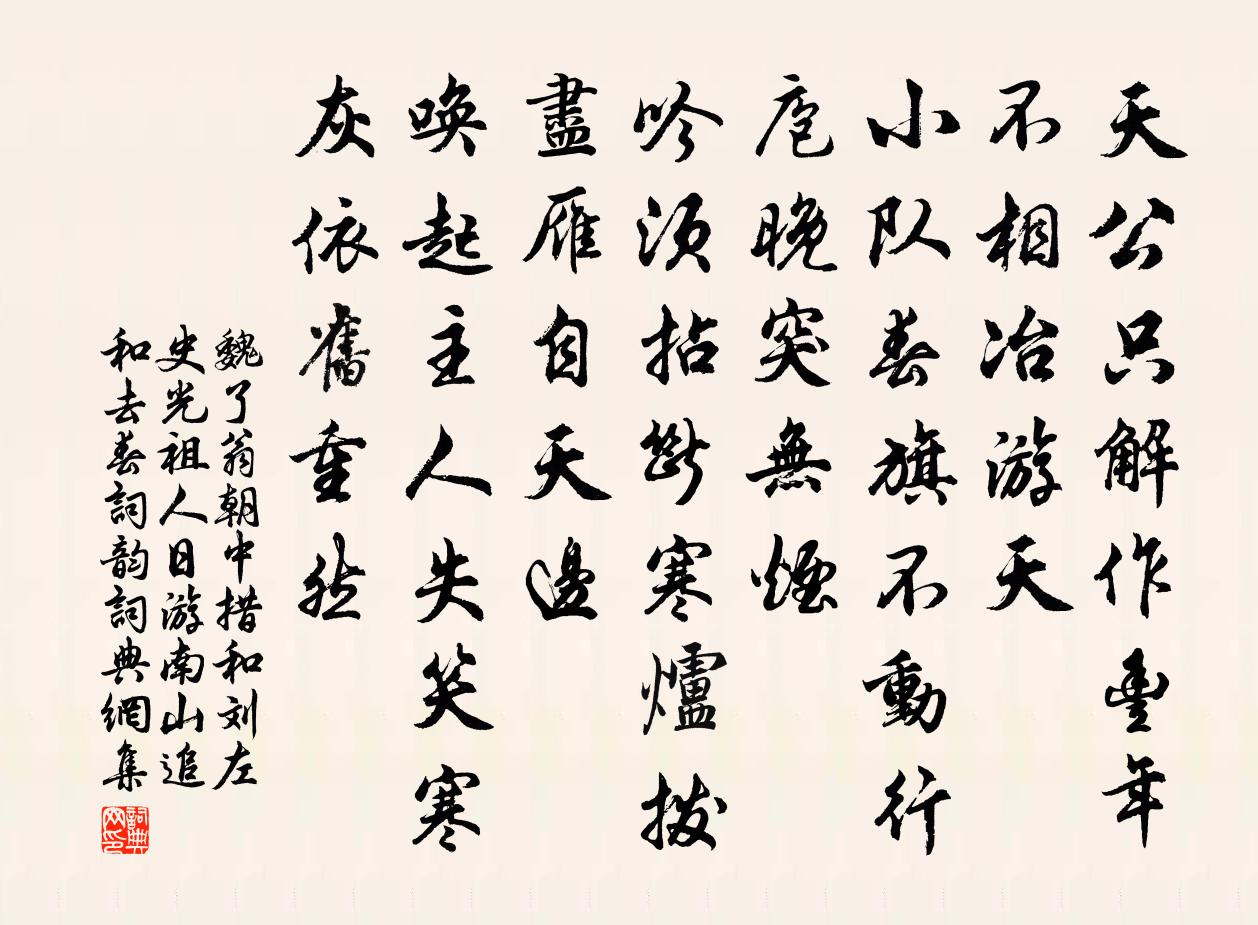 天公只解作豐年
不相冶游天
小队春旗不動行
庖晚突無煙
吟须拈斷寒爐撥
盡雁自天邊
喚起主人失笑寒
灰依舊重然
魏了翁朝中措和刘左
史光祖人日游南山追
和去春詞韵詞典網集
詞典
网印